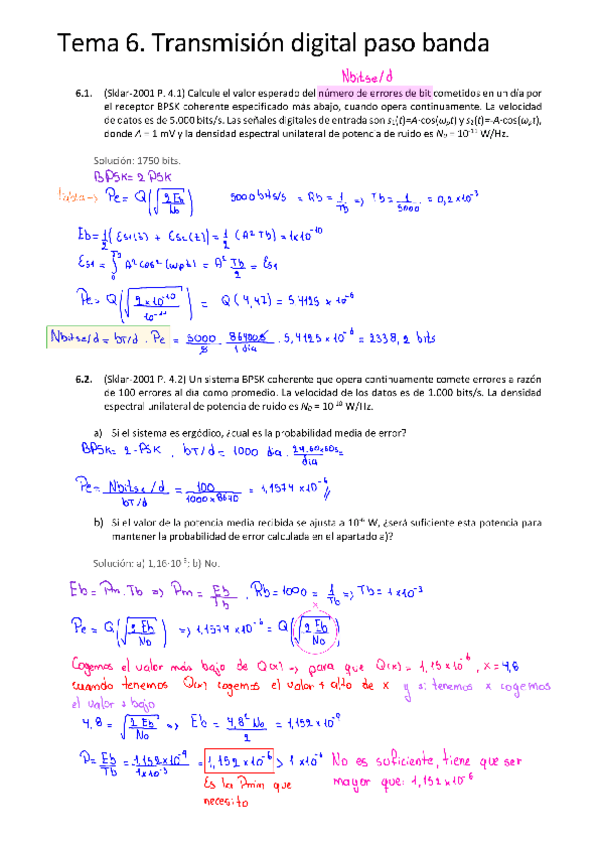 Tema 6. Transmisión digital paso banda
Nbitse/d
6.1. (Sklar-2001 P. 4.1) Calcule el valor esperado del número de errores de bit cometidos en un día por
el receptor BPSK coherente especificado más abajo, cuando opera continuamente. La velocidad
de datos es de 5.000 bits/s. Las señales digitales de entrada son s₁(t)=A·cos(ω₀t) y s₂(t)=-A·cos(ω₀t),
donde A = 1 mV y la densidad espectral unilateral de potencia de ruido es N₀ = 10⁻¹¹ W/Hz.
Solución: 1750 bits.
BPSK = 2 PSK
tabla → Pe = Q(√(2Eb/No)) 5000 bits/s = Rb = 1/Tb => Tb = 1/5000 = 0,2 x 10⁻³
Eb = 1/2 (Es1(t) + Es2(t)) = 1/2 (A² Tb) = 1x10⁻¹⁰
Es1 = ∫₀ᵀᵇ A² cos² (ωot) = A² Tb/2 = Es1
Pe = Q(√(2x10⁻¹⁰/10⁻¹¹)) = Q(4,47) = 5,4125 x 10⁻⁶
Nbitse/d = bT/d · Pe = 5000/s · 86400s/1 dia · 5,4125 x 10⁻⁶ = 2338,2 bits
6.2. (Sklar-2001 P. 4.2) Un sistema BPSK coherente que opera continuamente comete errores a razón
de 100 errores al día como promedio. La velocidad de los datos es de 1.000 bits/s. La densidad
espectral unilateral de potencia de ruido es N₀ = 10⁻¹⁰ W/Hz.
a) Si el sistema es ergódico, ¿cual es la probabilidad media de error?
BPSK = 2-PSK . bT/d = 1000 dia · 24.60x60s/dia =
Pe = Nbitse/d / bT/d = 100/1000x8640 = 1,1574 x 10⁻⁶
b) Si el valor de la potencia media recibida se ajusta a 10⁻⁶ W, ¿será suficiente esta potencia para
mantener la probabilidad de error calculada en el apartado a)?
Solución: a) 1,16·10⁻⁶; b) No.
Eb = Pm · Tb => Pm = Eb/Tb . Rb = 1000 = 1/Tb => Tb = 1x10⁻³
x
Pe = Q(√(2Eb/No)) => 1,1574 x10⁻⁶ = Q(√(2Eb/No))
Cogemos el valor más bajo de Q(x) → para que Q(x) = 1,15 x 10⁻⁶, x = 4,8
cuando tenemos Q(x) cogemos el valor + alto de x y si tenemos x cogemos
el valor + bajo
4,8 = √(2Eb/No) => Eb = 4,8² No/2 = 1,152 x10⁻⁹
P = Eb/Tb = 1,152x10⁻⁹/1x10⁻³ = 1,152 x10⁻⁶ > 1 x10⁻⁶ No es suficiente, tiene que ser
Es la Pmin que mayor que: 1,152 x10⁻⁶
necesito